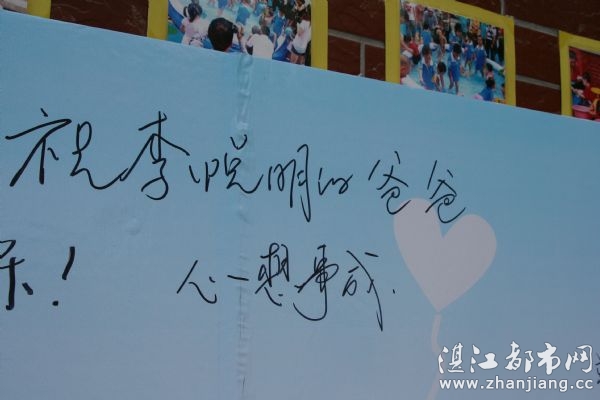 祝李悦明的爸爸
乐! 心一想事成.
湛江都市网
www.zhanjiang.cc